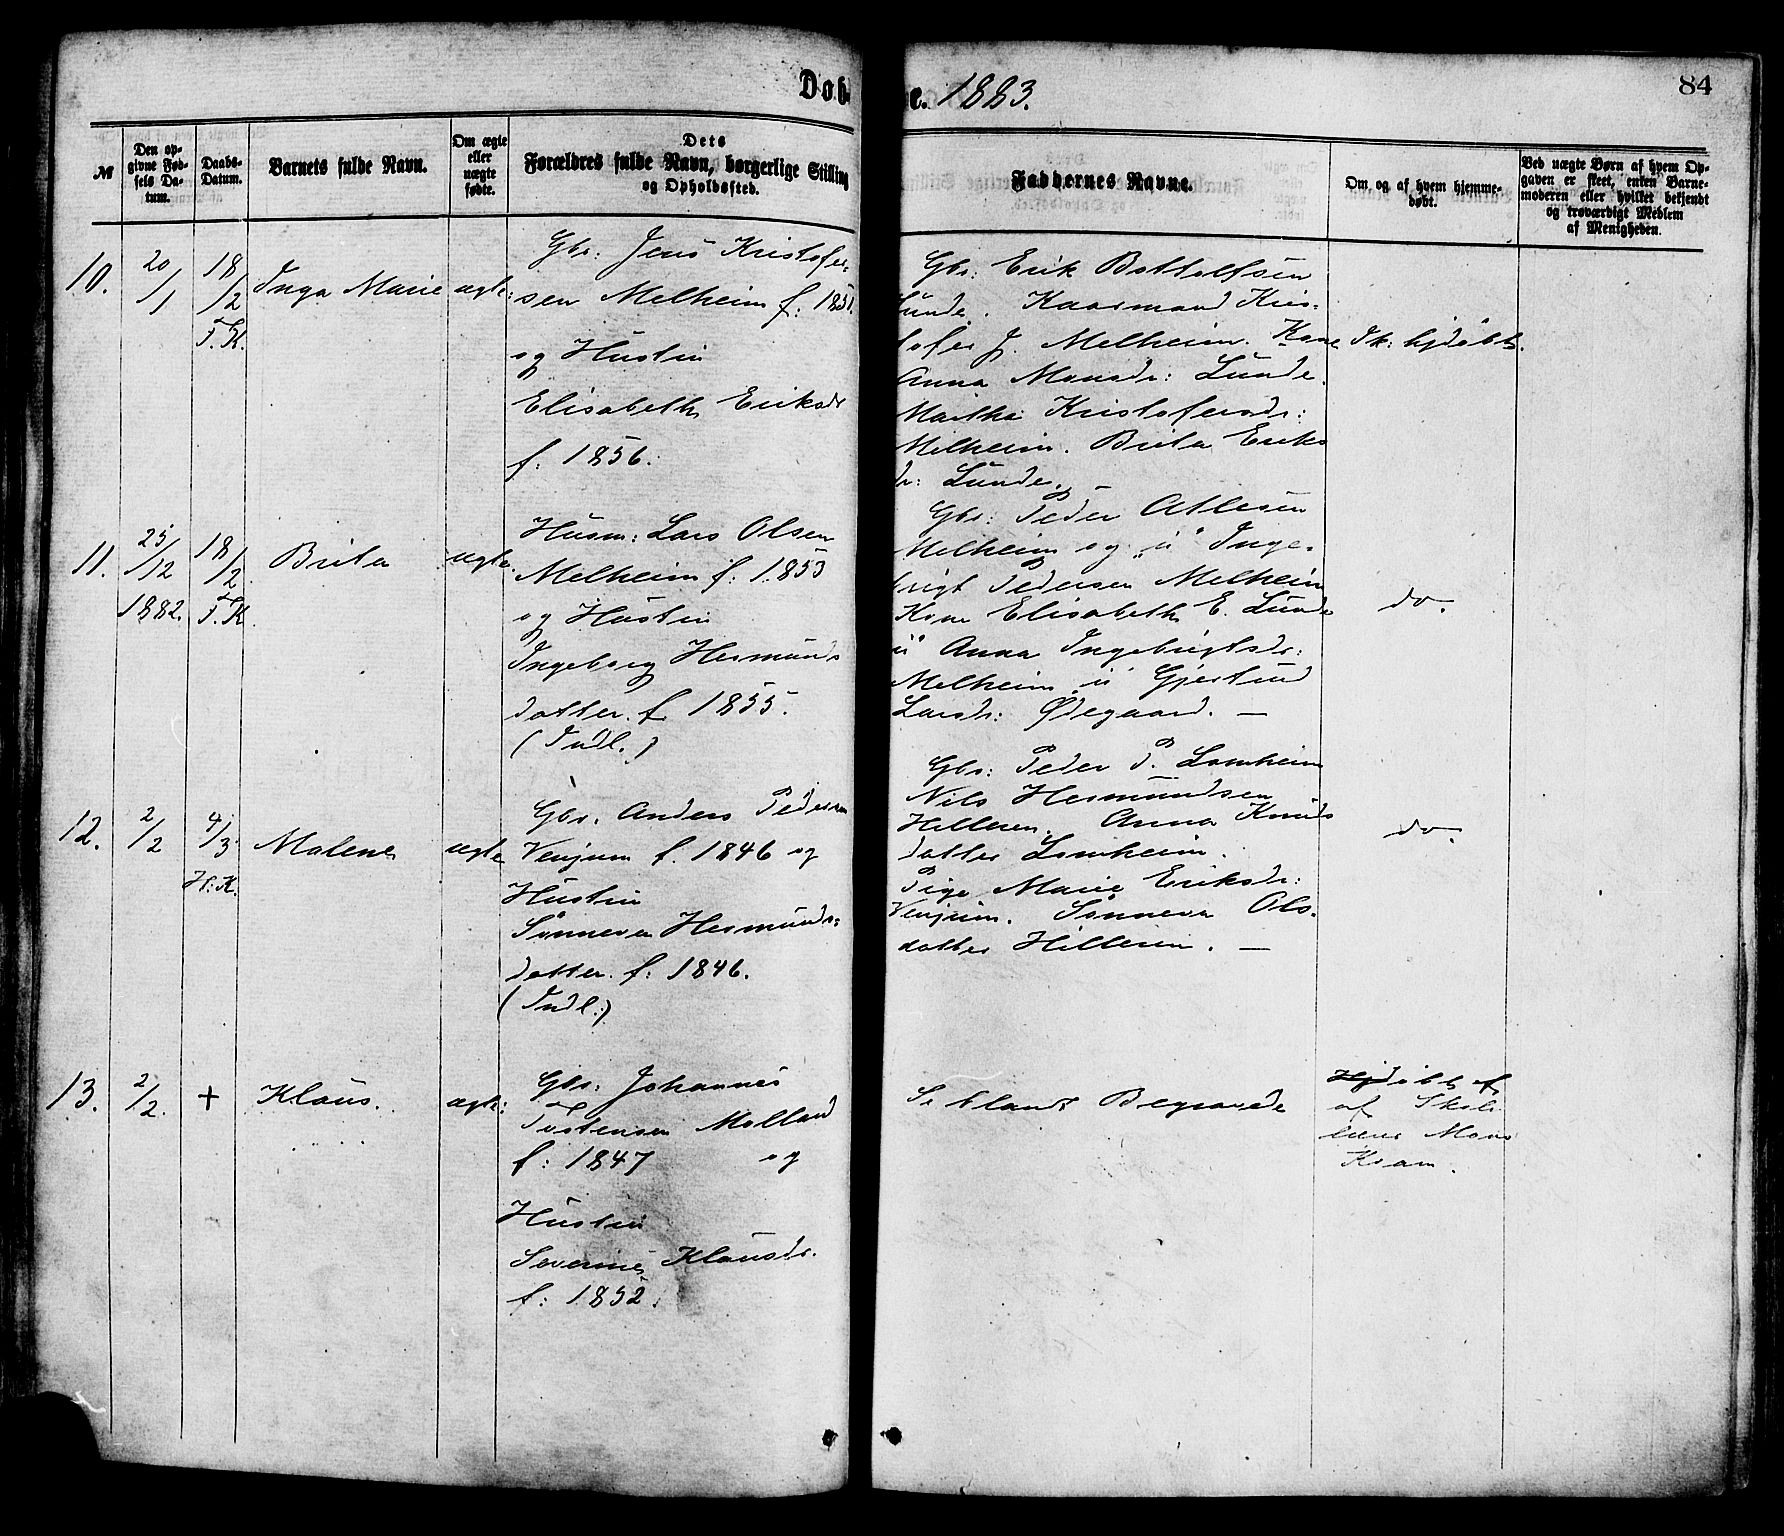 Døb
e. 1883.
84
№
Den op-
givne Fød-
sels Da-
tum.
Daabs-
Datum.
Barnets fulde Navn.
Om ægte
eller
uægte
fødte.
Dets
Forældres fulde Navn, borgerlige Stilling
og Opholdssted.
Faddernes Navne.
Om og af hvem hjemme-
døbt.
Ved uægte Børn af hvem Op-
gaven er skeet, enten Barne-
moderen eller hvilket bekjendt
og troværdigt Medlem
af Menigheden.
10.
20/1
18/2
F. K.
Inga Marie
ægte:
Gbr: Jens Kristofer-
sen Melheim f: 1851.
og Hustru
Elisabeth Eriksdr
f: 1856.
Gbr: Erik Bottolfsen
Lunde. Kaarmand Kris-
tofer J. Melheim. Kone
Anna Monsdr: Lunde.
Martha Kristofersdr:
Melheim. Brita Eriks
dr: Lunde.
Sk: hjdøbt.
11.
25/12
1882.
18/2
F. K.
Brita
ægte.
Husm: Lars Olsen
Melheim f: 1853
og Hustru
Ingeborg Hermunds
datter. f. 1855.
(Indl.)
Gbr: Peder Atlesen
Melheim og "u" Inge-
brigt Pedersen Melheim
Kone Elisabeth E. Lunde
"u" Anna Ingebrigtsdr:
Melheim "u" Gjertrud
Larsdr: Ødegaard. —
do.
12.
2/2
4/3
H: K.
Malene
ægte
Gbr. Anders Pedersen
Venjum f. 1846 og
Hustru
Sønneva Hermunds:
datter. f: 1846.
(Indl:)
Gbr: Peder P. Lomheim
Nils Hermundsen
Hilleren. Anna Knuds
datter Lomheim.
Pige Marie Eriksdr:
Venjum. Sønneva Ols.
datter Hilleren. —
do.
13.
2/2.
+
Klaus.
ægte:
Gbr: Johannes
Tostensen Molland
f: 1847 og
Hustru
Severine Klausdr.
f: 1852.
Se blandt Begravede
Hjdøbt af
af Skole
lærer Mons
Kvam.